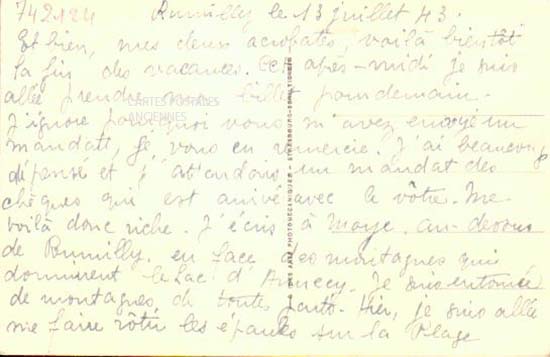 742124 Rumilly le 13 juillet 43.
Et bien, mes deux acrobates, voilà bientôt
la fin des vacances. Cet après-midi je suis
allée prendre mon billet pour demain.
CARTES POSTALES
ANCIENNES
J'ignore pourquoi vous m'avez envoyé un
mandat, je vous en remercie. J'ai beaucoup
dépensé et j'attendais un mandat des
chèques qui est arrivé avec le vôtre. Me
voilà donc riche. J'écris à Moye, au-dessus
de Rumilly, en face des montagnes qui
dominent le Lac d'Annecy. Je suis entourée
de montagnes de toutes parts. Hier, je suis allée
me faire rôtir les épaules sur la Plage
ARTS PHOTOMECANIQUES - STRASBOURG-